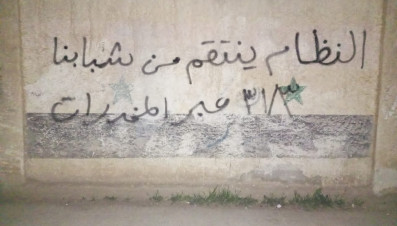 النظام ينتقم من شبابنا
٣١/٣ عبر المخدرات